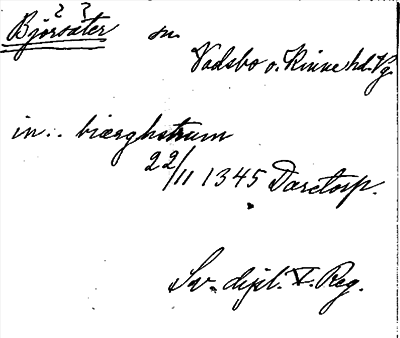 2 3
Björsäter sn.
Vadsbo o. Kinne hd. Vg.
in.. biærghstrum
22/11 1345 Daretorp.
Sv. dipl. V. Reg.